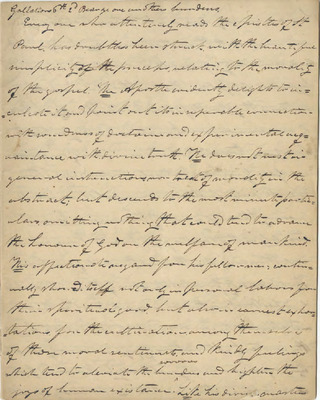 Gallatians 6th 2d Bear ye one anothers burdens
Every one who attentively reads the epistles of St
Paul, has doubtless been struck with the beautiful
simplicity of the precepts relating to the morality
of the gospel. The Apostle evidently delights to in-
culcate it and point out its inseparable connexion
with soundness of doctrine and experimental acq-
uaintance with divine truth. He does not rest in
general instructions, nor treat of morality in the
abstract, but descends to the most minute particu-
lars omitting nothing that could tend to advance
the honour of God or the welfare of mankind.
His affection to and for his fellow men, contin-
ually showed itself not only in personal labors for
their spiritual good but also in earnest exhor-
tations for the cultivation among the
of those moral sentiments, and kindly feelings
which tend to alleviate the burdens and heighten the
joys of human existence. Like his divine master